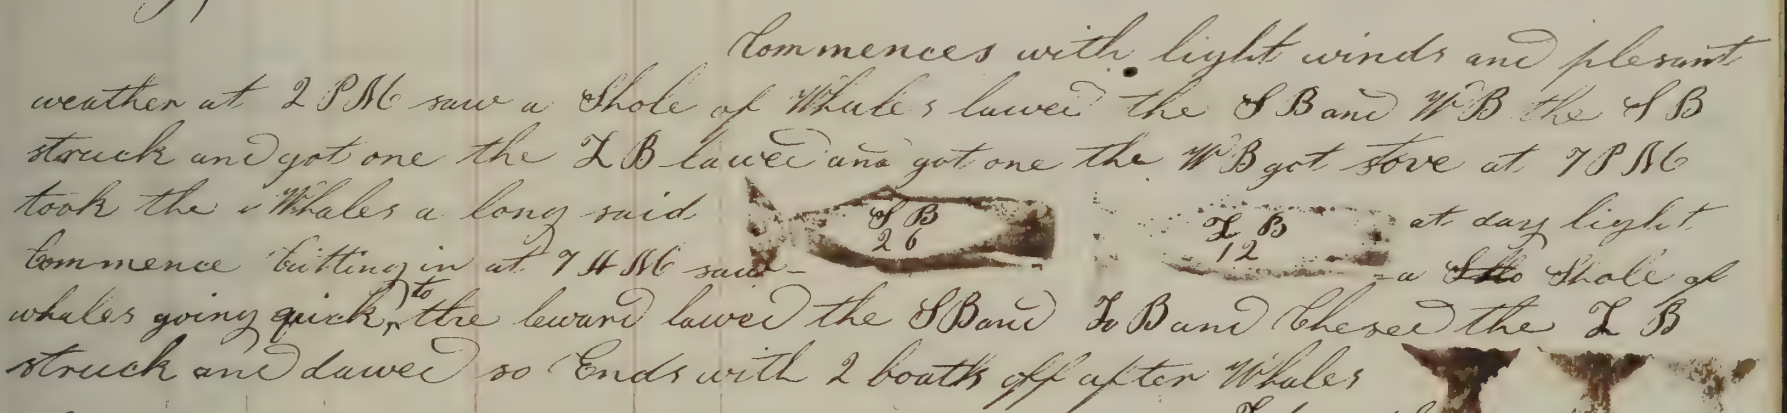 Commences with light winds and plesant
weather at 2 PM saw a Shole of Whales lawed the S B and W B the S B
struck and got one the L B lawed and got one the W B got stove at 7 PM
took the Whales a long said S B 26 L B 12 at day light
Commence Cutting in at 7 AM saw - - a Sho Shole of
whales going quick to the leward lawed the S B and L B and Chesed the L B
struck and dawed so Ends with 2 boats off after Whales